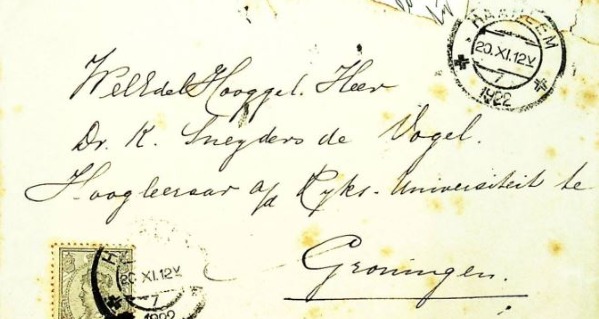 HAARLEEM
20.XI.12V
7
1922
WelEdelHooggel. Heer
Dr. K. Sneyders de Vogel.
Hoogleeraar a/d Ryks-Universiteit te
Groningen.
20 XI.12V
7
1922